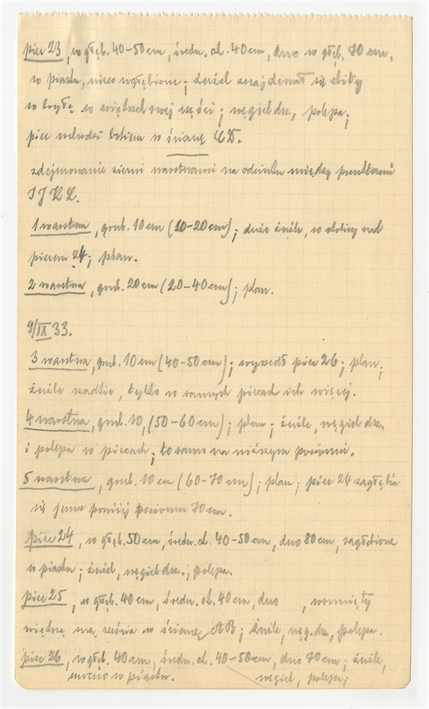 piec 23, w głęb. 40-50 cm, średn. ok. 40 cm, dno w głęb. 70 cm,
w piasku, nieco wgłębione; żużel znajdował się zbity
w bryłę w większej swej części; węgiel drz., polepa;
piec wchodzi bokiem w ścianę CD.
zdejmowanie ziemi warstwami na odcinku między punktami
IJKL.
1 warstwa, grub. 10 cm (10-20 cm); duże żużle, w okolicy nad
piecem 24; plan.
2 warstwa, grub. 20 cm (20-40 cm); plan.
9/IX 33.
3 warstwa, grub. 10 cm (40-50 cm); wyszedł piec 26; plan;
żużle rzadkie, tylko w samych piecach ich więcej.
4 warstwa, grub. 10, (50-60 cm); plan; żużle, węgiel drz.
i polepa w piecach; to samo na niższym poziomie.
5 warstwa, grub. 10 cm (60-70 cm); plan; piec 24 zagłębia
się jeszcze poniżej poziomu 70 cm.
piec 24, w głęb. 50 cm, średn. ok. 40-50 cm, dno 80 cm, zagłębione
w piasku; żużel, węgiel drz., polepa.
piec 25, w głęb. 40 cm, średn. ok. 40 cm, dno , wsunięty
większą swą częścią w ścianę AB; żużle, węg. drz., polepa.
piec 26, w głęb. 40 cm, średn. ok. 40-50 cm, dno 70 cm; żużle,
nieco w piasku. węgiel, polepa,